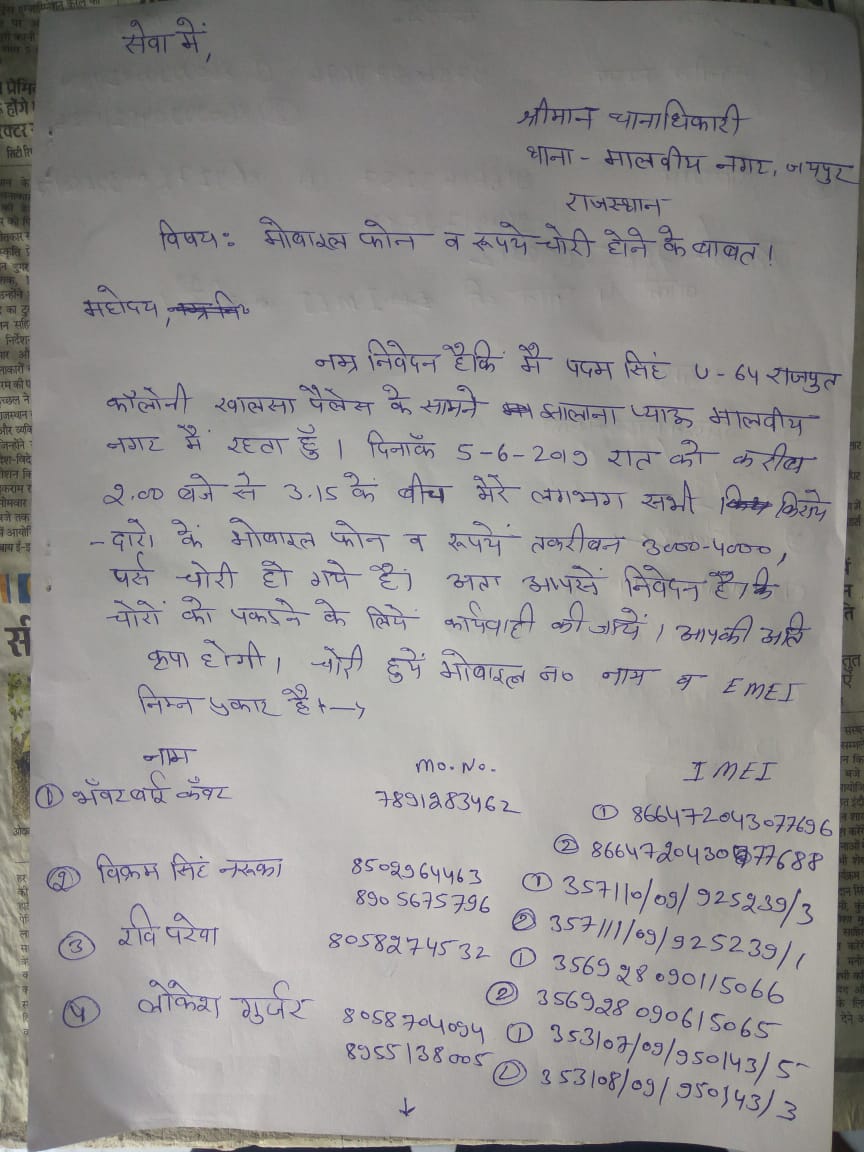 सेवा में,
श्रीमान थानाधिकारी
थाना - मालवीय नगर, जयपुर
राजस्थान
विषय: मोबाइल फोन व रूपये चोरी होने के बाबत!
महोदय,
नम्र निवेदन है कि मैं पदम सिहं U-64 राजपुत
कॉलोनी खालसा पैलेस के सामने झालाना प्याऊ मालवीय
नगर में रहता हुँ। दिनाँक 5-6-2019 रात को करीब
2.00 बजे से 3.15 के बीच मेरे लगभग सभी किराये
-दारो के मोबाइल फोन व रूपयें तकरीबन 3000-4000,
पर्स चोरी हो गये है। अतः आपसें निवेदन है कि
चोरों को पकडने के लियें कार्यवाही की जायें। आपकी अति
कृपा होगी। चोरी हुयें मोबाइल न० नाम व EMEI
निम्न प्रकार है :-→
नाम Mo. No. IMEI
① भँवरबाई कँवर 7891283462 ① 866472043077696
② 866472043077688
② विक्रम सिहं नरूका 8502964463 ① 357110/09/925239/3
8905675796 ② 357111/09/925239/1
③ रवि परेवा 8058274532 ① 356928090115066
② 356928090615065
④ लोकेश गुर्जर 8058704094 ① 353107/09/950143/5
8955138005 ② 353108/09/950143/3
↓